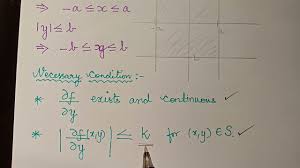 ⇒ -a ≤ x ≤ a
|y| ≤ b
⇒ -b ≤ xy ≤ b
Necessary Condition :-
* ∂f/∂y exists and continuous ✓
* |∂f(x,y)/∂y| ≤ k for (x,y) ∈ S. ✓